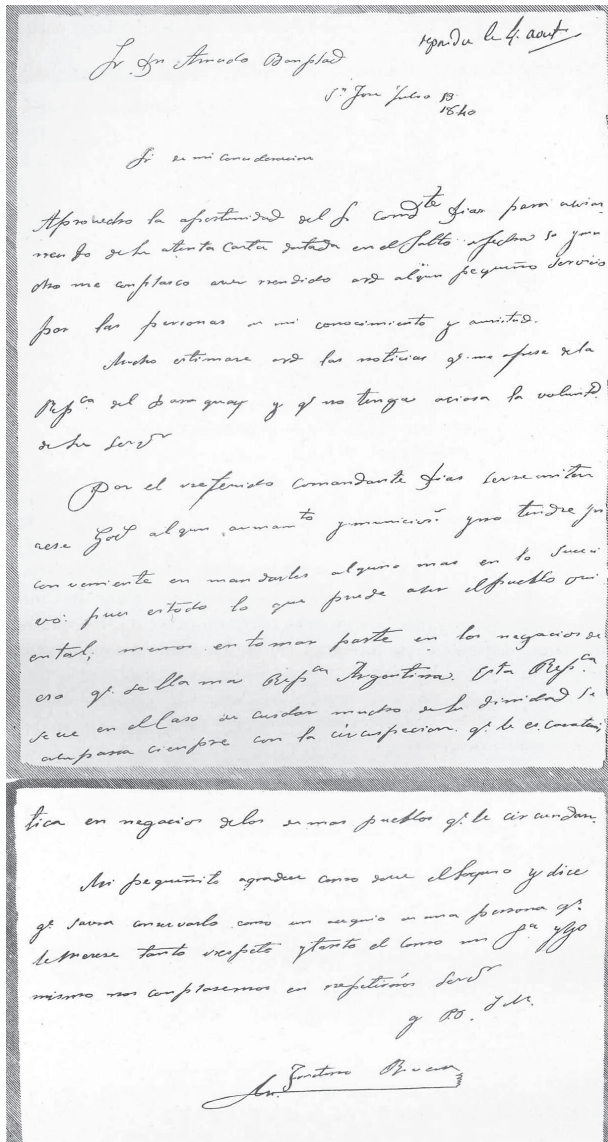 reponduë le 4. aout
Sr. Dn Amado Bonplad
Sn Jose Julio 13
1840
Sr de mi concideracion
Aprovecho la oportunidad del Sr Comdte Dias para
de su atenta carta datada en el Salto afecha 30 y
otro me conplasco aver rendido a Vd algun pequeño servicio
por las personas de mi conocimiento y amistad.
Mucho estimare a Vd las noticias qe. me ofrese de la
Repca del Paraguay y qe no tenga ociosa la volunt
de su Servor
Por el referido comandante Dias se remiten
algun armamto y municion y no tendre yn
conveniente en mandarles alguno mas en lo suce
vo: pues es todo lo que puede aser el pueblo ori
ental; menos en tomar parte en los negocios de
esa qe. se llama Repca Argentina. Esta Repca
se ve en el caso de cuidar mucho de su dinidad se
ciempre con la circuspecion qe. le es carater
tica en negocios de los demas pueblos qe. le circundan.
Mi pequeñito agradece como deve el y dice
qe. savra conservarlo como un de una persona qe.
le merese tanto respeto y tanto el como mi Sa y yo
mismo nos conplasemos en repetirnos Servor
q B. S. M.
Fructuoso Rivera